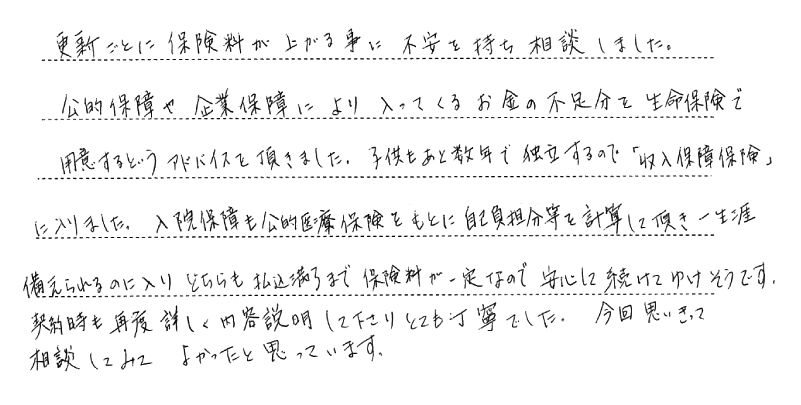 更新ごとに保険料が上がる事に不安を持ち相談しました。
公的保障や企業保障により入ってくるお金の不足分を生命保険で
用意するというアドバイスを頂きました。子供もあと数年で独立するので「収入保障保険」
に入りました。入院保障も公的医療保険をもとに自己負担分等を計算して頂き一生涯
備えられるのに入りどちらも払込満了まで保険料が一定なので安心して続けてゆけそうです。
契約時も再度詳しく内容説明して下さりとても丁寧でした。今回思いきって
相談してみてよかったと思っています。